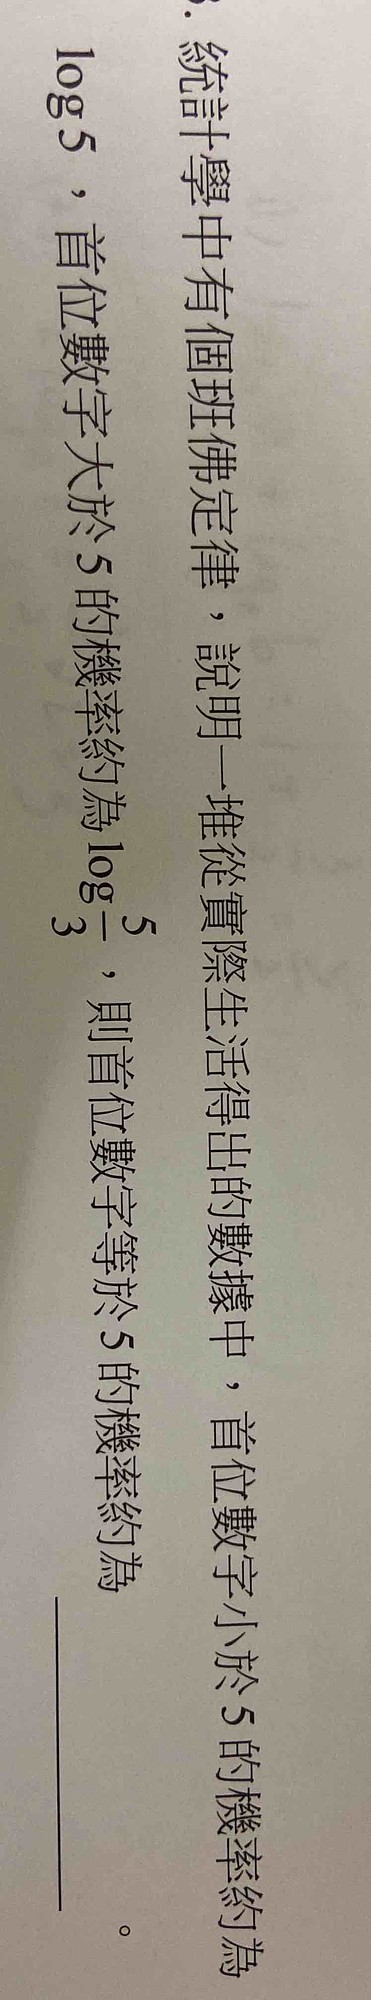 . 統計學中有個班佛定律，說明一堆從實際生活得出的數據中，首位數字小於 5 的機率約為
log 5 ，首位數字大於 5 的機率約為 log 5/3 ，則首位數字等於 5 的機率約為 ________ 。